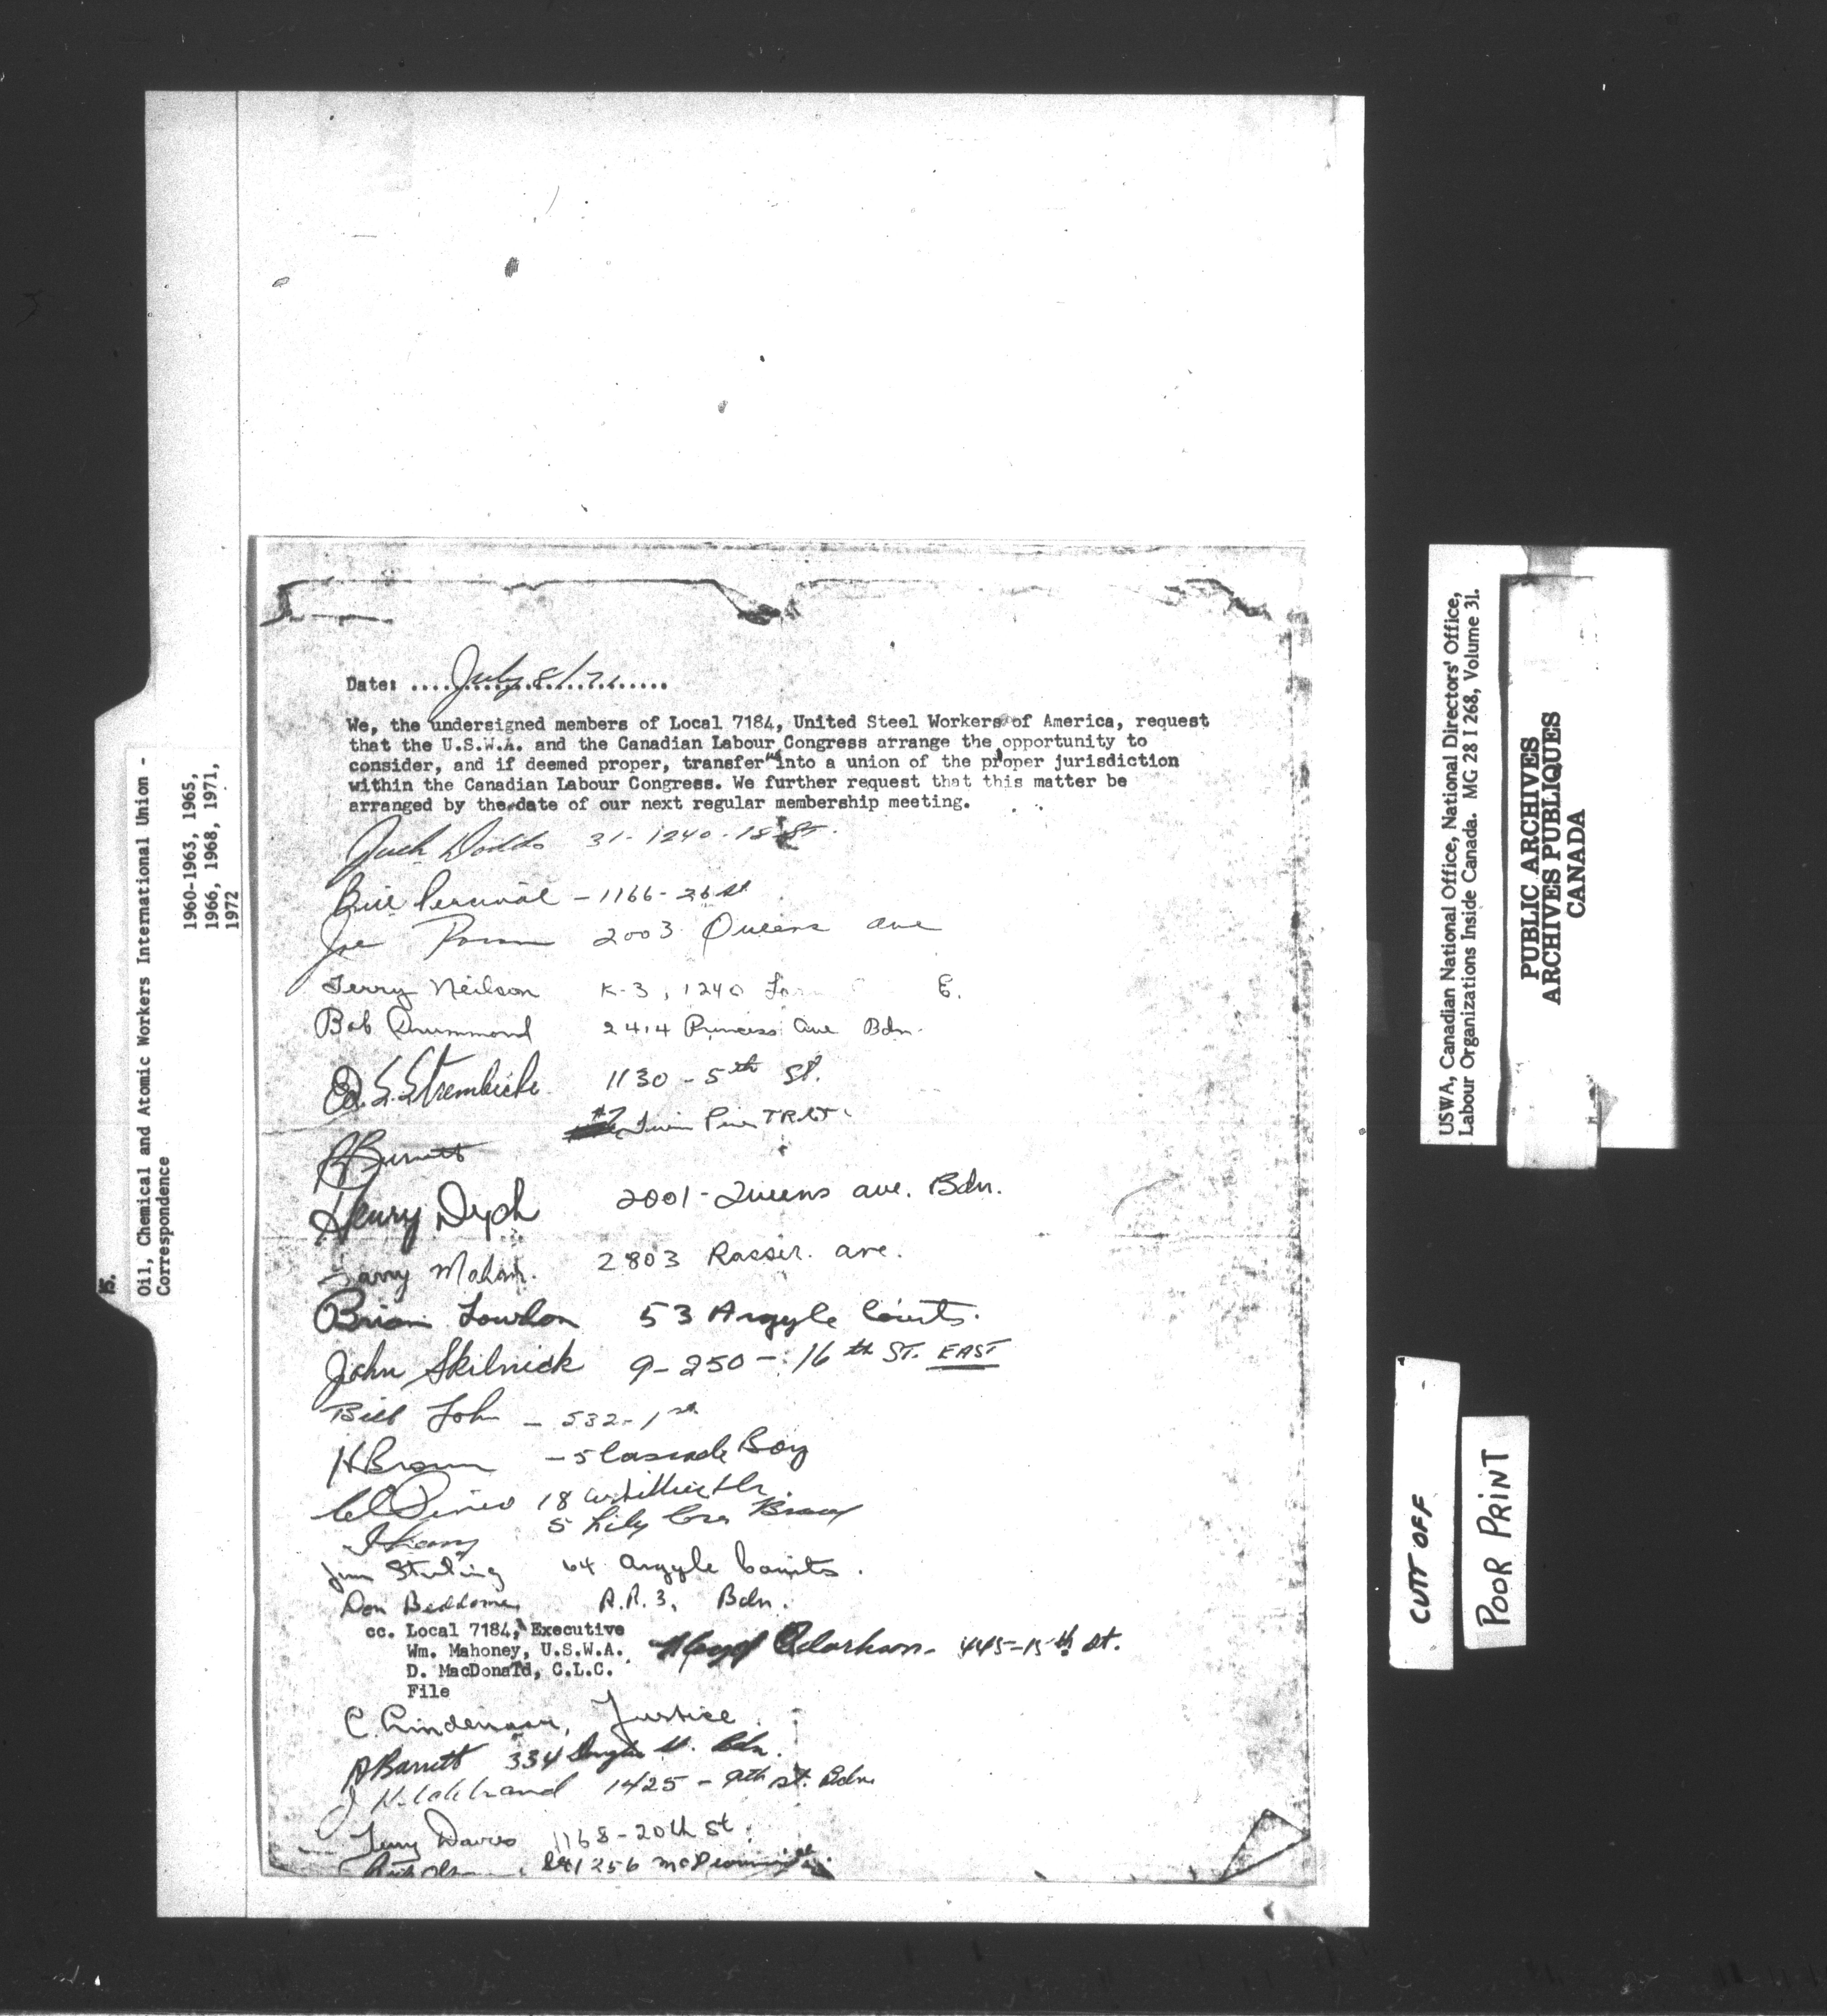 Date: .................... July 8/71
We, the undersigned members of Local 7184, United Steel Workers of America, request
that the U.S.W.A. and the Canadian Labour Congress arrange the opportunity to
consider, and if deemed proper, transfer into a union of the proper jurisdiction
within the Canadian Labour Congress. We further request that this matter be
arranged by the date of our next regular membership meeting.
Jack Dodds 31-1240-18 St.
Bill Percival - 1166-26 St
Joe 2003 Queens ave
Terry Neilson K-3, 1240 E.
Bob Drummond 2414 Princess Ave Bdn.
Ed. S. Strembicki 1130 - 5th St.
#7 Twin Pines TR CT.
R Burnett
Henry Dyck 2001-Queens ave. Bdn.
Larry 2803 Rosser ave.
Brian Lowdon 53 Argyle Courts.
John Skilnick 9-250-16th ST. EAST
Bill John - 532-1st
H Brown - 5 Cascade Bay
18
5 Lily Cres
Jim Sterling 64 Argyle Courts.
Don Beddome R.R. 3, Bdn.
cc. Local 7184, Executive
Wm. Mahoney, U.S.W.A.
D. MacDonald, C.L.C.
File
Clarkson - 445-15th St.
C. Lindenaar, Justice
A Barrett 334 Douglas St. Bdn.
J Hildebrand 1425 - 9th St. Bdn
Terry Davies 1168-20th St.
1256
15.
Oil, Chemical and Atomic Workers International Union -
Correspondence
1960-1963, 1965,
1966, 1968, 1971,
1972
USWA, Canadian National Office, National Directors' Office,
Labour Organizations Inside Canada. MG 28 I 268, Volume 31.
PUBLIC ARCHIVES
ARCHIVES PUBLIQUES
CANADA
CUTT OFF
POOR PRINT